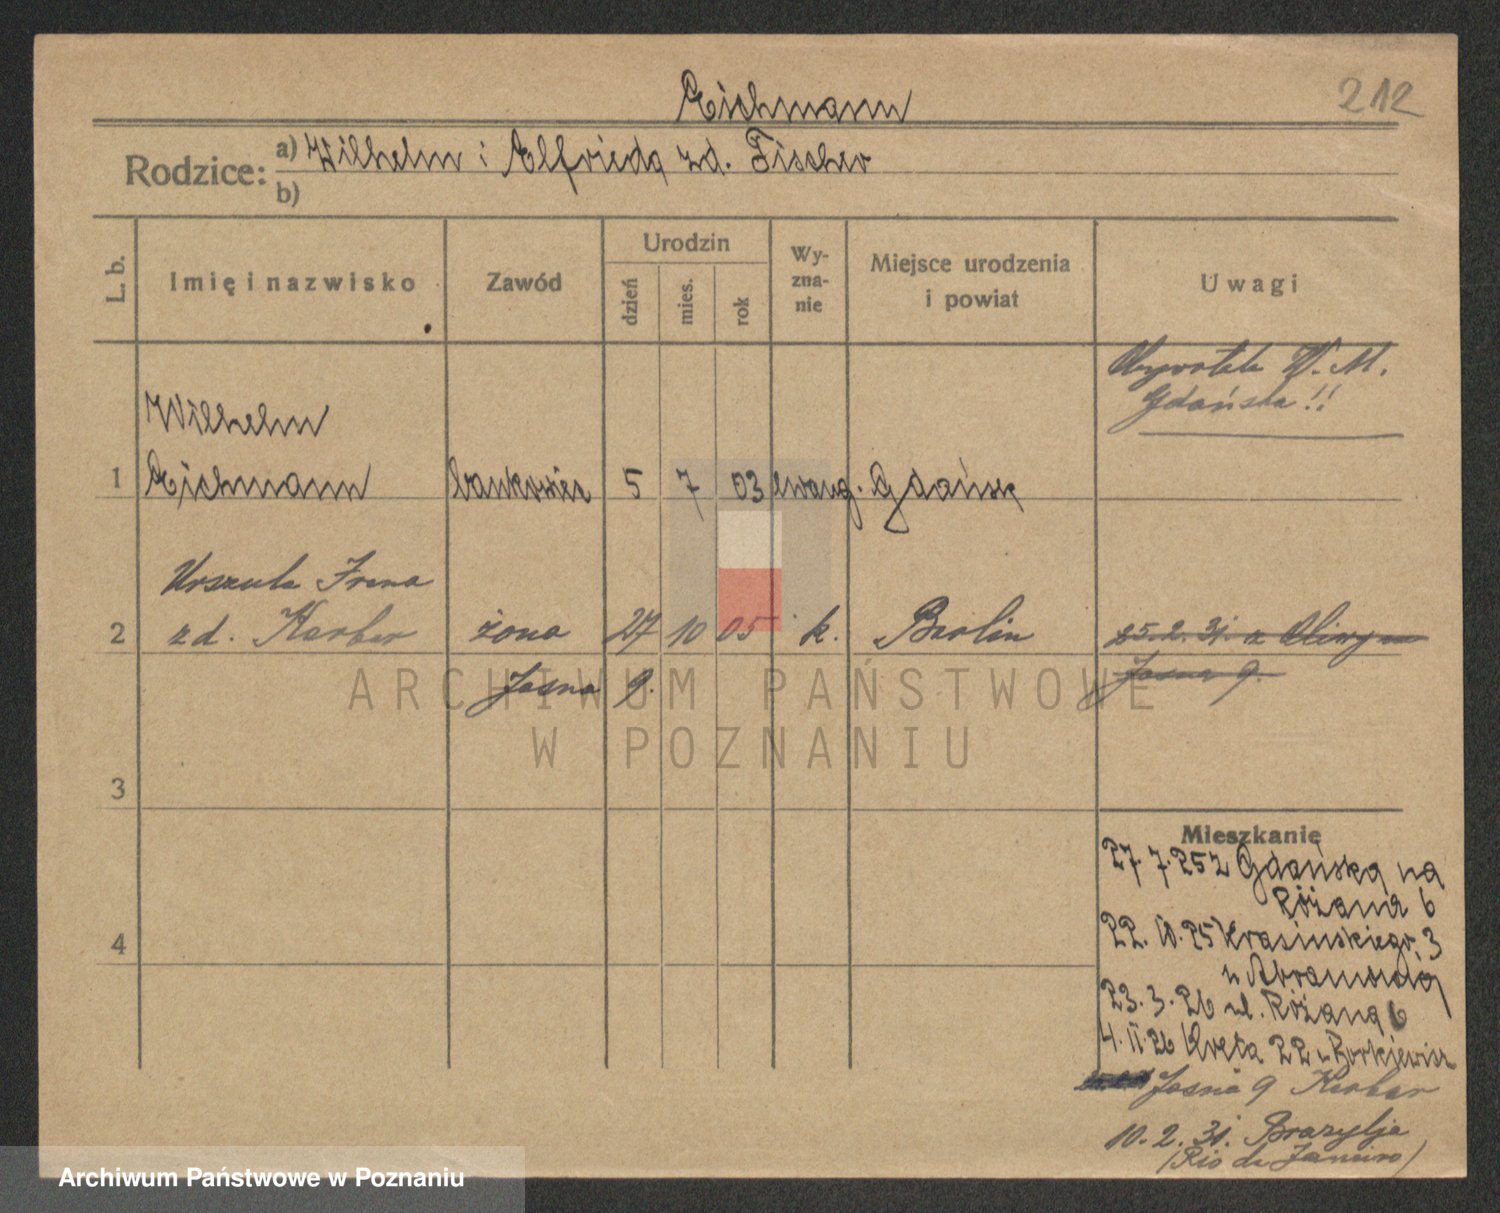 212
Eichmann
Rodzice: a) Wilhelm i Elfrieda zd. Fischer
b)
L. b. Imię i nazwisko Zawód Urodzin dzień mies. rok Wy-zna-nie Miejsce urodzenia i powiat Uwagi
Obywatel W. M.
Gdańska!!
Wilhelm
1 Eichmann bankowiec 5 7 03 ewang. Gdańsk
Urszula Irena
2 zd. Karber żona 27 10 05 k. Berlin 25.2.31. z Oliwy
Jasna 9. Jasna 9.
3
4
Mieszkanie
27.7.25 z Gdańska na
Różana 6
22.10.25 Krasińskiego 3
u
23.3.26 ul. Różana 6
4.II.26 Kręta 22 u Borkiewicz
Jasna 9 Karber
10.2.31. Brazylja
(Rio de Janeiro)
ARCHIWUM PAŃSTWOWE
W POZNANIU
Archiwum Państwowe w Poznaniu